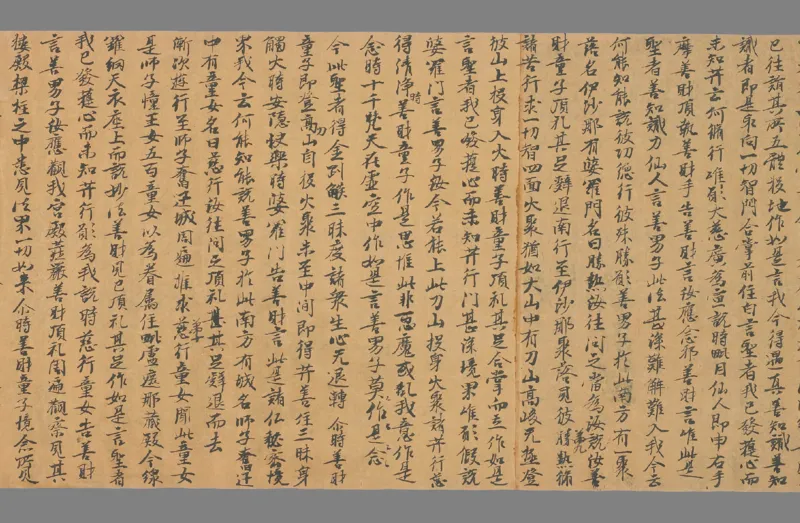 已往詣其所五體投地作如是言我今得遇真善知識善知
識者即是趣向一切智門合掌前住白言聖者我已發莚心而
未知𦬇云何修行唯願大慈廣為宣說時毗目仙人即申右手
摩善財頂執善財手告善財言汝應念邪善財言唯此是
聖者善知識力仙人言善男子此法甚深難解難入我今云
何能知能說彼功德行彼殊勝願善男子於此南方有一聚
落名伊沙那有婆羅門名曰勝熱汝往問之當為汝說汝善
第九
財童子頂礼其足辭退南行至伊沙那聚落見彼勝熱修
諸苦行求一切智四面火聚猶如大山中有刀山高峻无極登
彼山上投身入火時善財童子頂礼其足合掌而立作如是
言聖者我已發莚心而未知𦬇行門甚深境界唯願假說
婆羅門言善男子汝今若能上此刀山投身火聚諸𦬇行悉
得清淨時善財童子作是思惟此非惡魔或乱我意作是
念時十千梵天在虛空中作如是言善男子莫作是念
今此聖者得金剛燄三昧度諸衆生心无退轉尒時善財
童子即登刀高山自投火聚未至中間即得𦬇善住三昧身
觸火時安隱快樂時婆羅門告善財言此是諸仏秘密境
界我今云何能知能說善男子於此南方有城名師子奮迅
中有童女名曰慈行汝往問之頂礼其足辭退而去
第十
漸次遊行至師子奮迅城周遍推求慈行童女聞此童女
是師子幢王女五百童女以為眷屬住毗盧遮那藏殿今線
羅網天衣座上而說妙法善財見已頂礼其足作如是言聖者
我已發莚心而未知𦬇行願為我說時慈行童女告善財
言善男子汝應觀我宮殿莊嚴善財頂礼周遍觀察見其
樓殿柱之中悉見法界一切如來尒時善財童子念所見